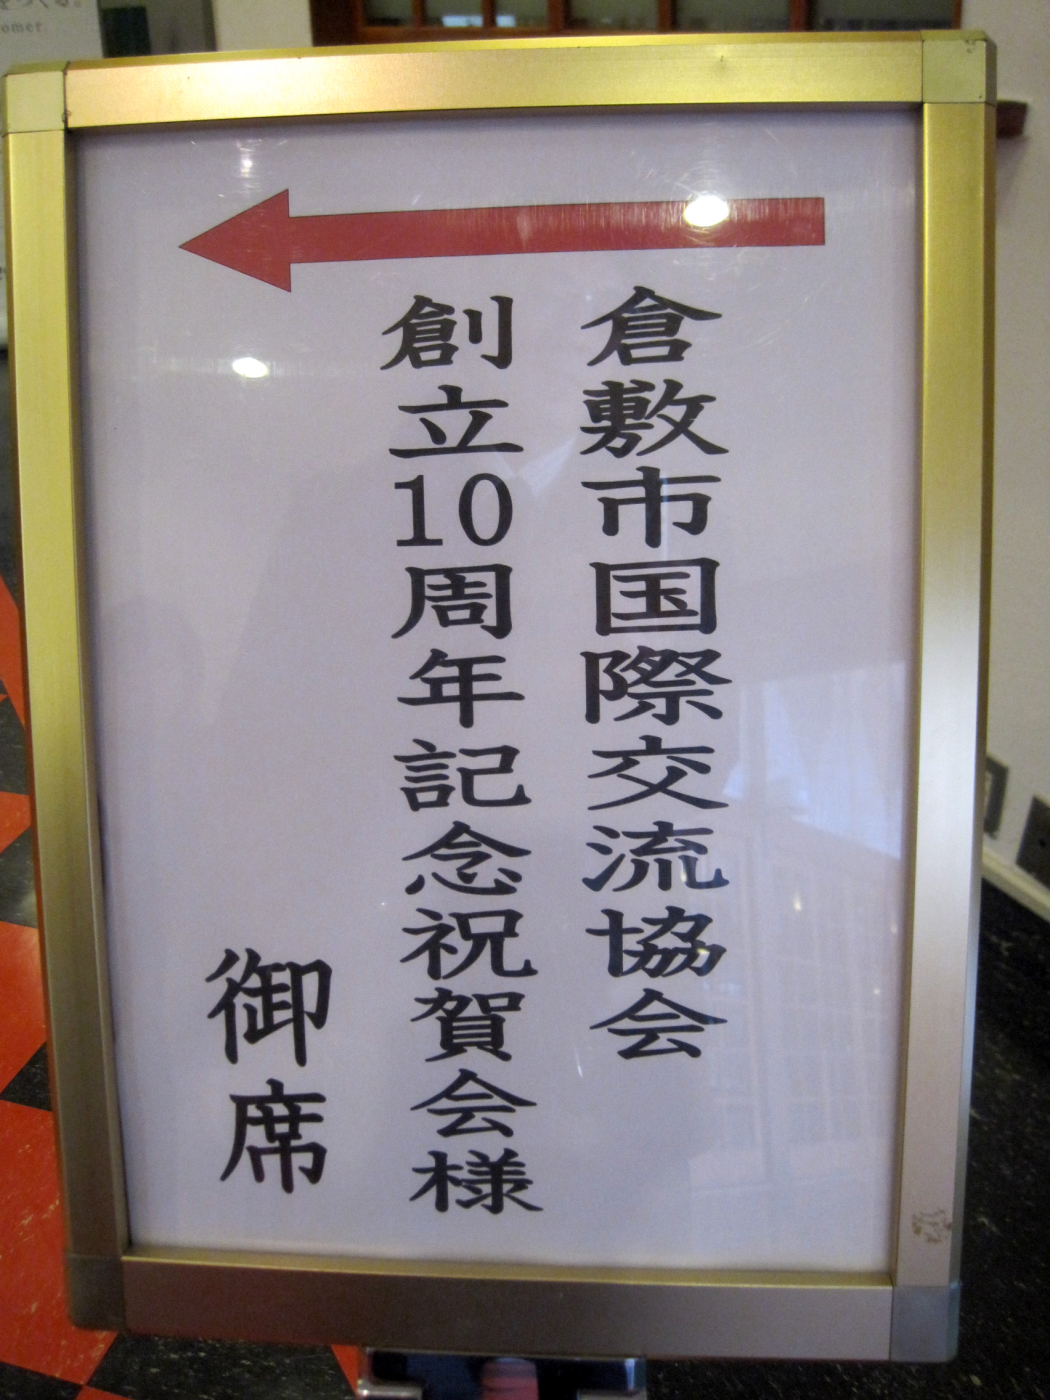 倉敷市国際交流協会
創立10周年記念祝賀会様
御席